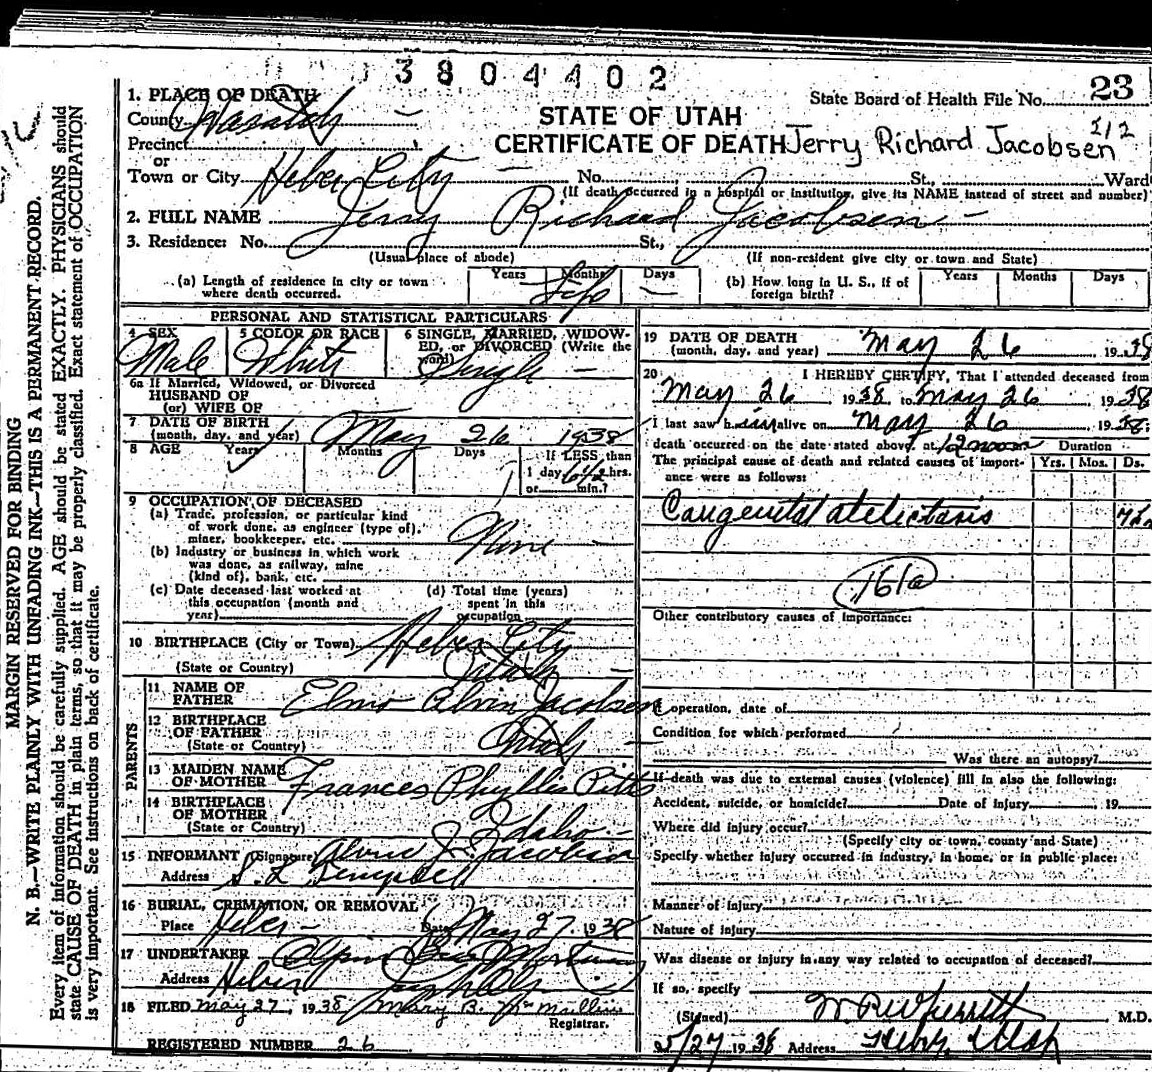 3804402
23
State Board of Health File No.
STATE OF UTAH
CERTIFICATE OF DEATH Jerry Richard Jacobsen
212
1. PLACE OF DEATH
County Wasatch
Precinct
or
Town or City Heber City No. St., Ward
(If death occurred in a hospital or institution, give its NAME instead of street and number)
2. FULL NAME Jerry Richard Jacobsen
3. Residence: No. St.,
(Usual place of abode) (If non-resident give city or town and State)
(a) Length of residence in city or town where death occurred. Years Months Days Life
(b) How long in U. S., if of foreign birth? Years Months Days
PERSONAL AND STATISTICAL PARTICULARS
4 SEX Male
5 COLOR OR RACE White
6 SINGLE, MARRIED, WIDOWED, or DIVORCED (Write the word) Single
6a If Married, Widowed, or Divorced
HUSBAND OF
(or) WIFE OF
7 DATE OF BIRTH
(month, day, and year) May 26 1938
8 AGE Years Months Days If LESS than
1 day 6 1/2 hrs.
or min.?
9 OCCUPATION OF DECEASED
(a) Trade, profession, or particular kind
of work done, as engineer (type of),
miner, bookkeeper, etc. None
(b) Industry or business in which work
was done, as railway, mine
(kind of), bank, etc.
(c) Date deceased last worked at
this occupation (month and
year)
(d) Total time (years)
spent in this
occupation
10 BIRTHPLACE (City or Town) Heber City
(State or Country) Utah
PARENTS
11 NAME OF
FATHER Elmo Alvin Jacobsen
12 BIRTHPLACE
OF FATHER
(State or Country) Utah
13 MAIDEN NAME
OF MOTHER Frances Phyllis Pitts
14 BIRTHPLACE
OF MOTHER
(State or Country) Idaho
15 INFORMANT (Signature) J. Jacobsen
Address
16 BURIAL, CREMATION, OR REMOVAL
Place Heber Date May 27 1938
17 UNDERTAKER Mortuary
Address Heber
18 FILED May 27, 1938 Mary B.
Registrar.
REGISTERED NUMBER 26
19 DATE OF DEATH
(month, day, and year) May 26 1938
20 I HEREBY CERTIFY, That I attended deceased from
May 26 1938 to May 26 1938
I last saw him alive on May 26 1938;
death occurred on the date stated above, at 12 noon Duration
The principal cause of death and related causes of importance were as follows: Yrs. Mos. Ds.
Congenital atelectasis
161a
Other contributory causes of importance:
If operation, date of
Condition for which performed
Was there an autopsy?
If death was due to external causes (violence) fill in also the following:
Accident, suicide, or homicide? Date of injury 19
Where did injury occur?
(Specify city or town, county and State)
Specify whether injury occurred in industry, in home, or in public place:
Manner of injury
Nature of injury
Was disease or injury in any way related to occupation of deceased?
If so, specify
(Signed) M.D.
5/27 1938 Address Heber, Utah
MARGIN RESERVED FOR BINDING
N. B.—WRITE PLAINLY WITH UNFADING INK—THIS IS A PERMANENT RECORD.
Every item of information should be carefully supplied. AGE should be stated EXACTLY. PHYSICIANS should
state CAUSE OF DEATH in plain terms, so that it may be properly classified. Exact statement of OCCUPATION
is very important. See instructions on back of certificate.